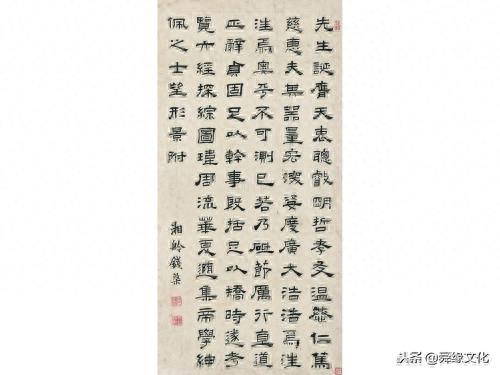 先生誕膺天衷聰叡明哲孝友温恭仁篤
慈惠夫其器量宏深姿度廣大浩浩焉汪
汪焉奥乎不可測已若乃砥節厲行直道
正辭貞固足以幹事殷括足以橋時遂考
覽六經探綜圖瑋周流華夏隨集帝學紳
佩之士望形景附
湘舲錢棨
头条 @舜缘文化